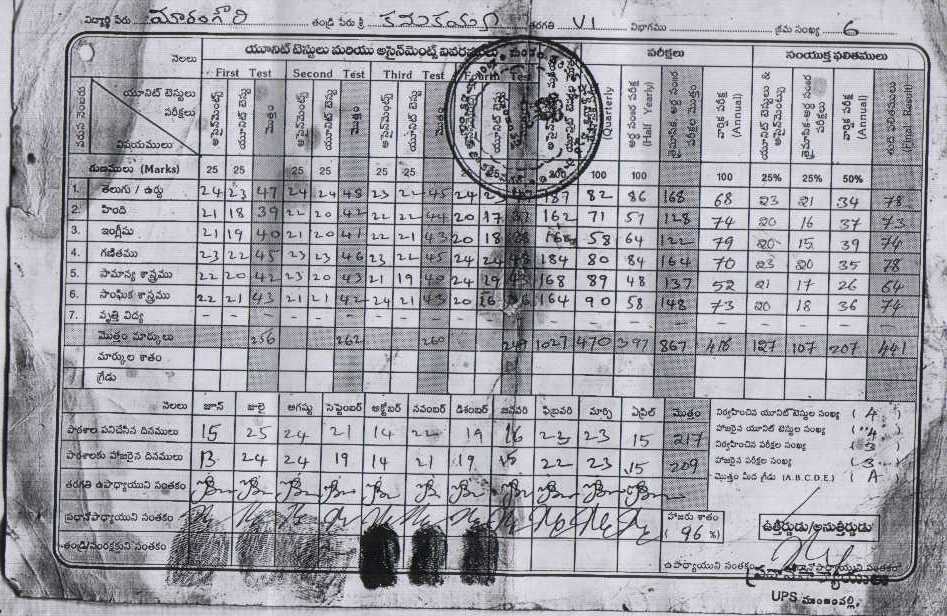 విద్యార్థి పేరు తండ్రి పేరు శ్రీ తరగతి VI విభాగము క్రమ సంఖ్య 6
నెలలు యూనిట్ టెస్టులు మరియు అసైన్‌మెంట్స్ వివరములు పరీక్షలు సంయుక్త ఫలితములు
First Test Second Test Third Test Fourth Test
యూనిట్ టెస్టులు పరీక్షలు
విషయములు
అసైన్‌మెంట్స్ యూనిట్ టెస్టు మొత్తం అసైన్‌మెంట్స్ యూనిట్ టెస్టు మొత్తం అసైన్‌మెంట్స్ యూనిట్ టెస్టు మొత్తం
(Quarterly) (Half Yearly) వార్షిక పరీక్ష (Annual) యూనిట్ టెస్టులు & అసైన్‌మెంట్స్ వార్షిక పరీక్ష (Annual) తుది ఫలితములు (Final Result)
గుణములు (Marks) 25 25 25 25 25 25 100 100 100 25% 25% 50%
1. తెలుగు / ఉర్దు 24 23 47 24 24 48 23 22 45 24 187 82 86 168 68 23 21 34 78
2. హింది 21 18 39 22 20 42 22 22 44 20 17 37 162 71 57 128 74 20 16 37 73
3. ఇంగ్లీషు 21 19 40 21 20 41 22 21 43 20 18 58 64 122 79 20 15 39 74
4. గణితము 23 22 45 23 23 46 23 22 45 24 24 48 184 80 84 164 70 23 20 35 78
5. సామాన్య శాస్త్రము 22 20 42 23 20 43 21 19 40 24 19 43 168 89 48 137 52 21 17 26 64
6. సాంఘిక శాస్త్రము 22 21 43 21 21 42 24 21 45 20 16 36 164 90 58 148 73 20 18 36 74
7. వృత్తి విద్య – – – – – – – – – – – – – – – – – – – – – –
మొత్తం మార్కులు 256 262 260 249 1027 470 397 867 416 127 107 207 441
మార్కుల శాతం
గ్రేడు
నెలలు జూన్ జులై ఆగష్టు సెప్టెంబర్ అక్టోబర్ నవంబర్ డిశంబర్ జనవరి ఫిబ్రవరి మార్చి ఏప్రిల్ మొత్తం నిర్వహించిన యూనిట్ టెస్టుల సంఖ్య ( 4 )
పాఠశాల పనిచేసిన దినములు 15 25 24 21 14 22 19 16 23 23 15 217 హాజరైన యూనిట్ టెస్టుల సంఖ్య ( 4 )
నిర్వహించిన పరీక్షల సంఖ్య ( 3 )
పాఠశాలకు హాజరైన దినములు 13 24 24 19 14 21 19 15 22 23 15 209 హాజరైన పరీక్షల సంఖ్య ( 3 )
తరగతి ఉపాధ్యాయుని సంతకం మొత్తం మీద గ్రేడు (A.B.C.D.E.) ( A )
ప్రధానోపాధ్యాయుని సంతకం హాజరు శాతం
( 96 %) ఉత్తీర్ణుడు/అనుత్తీర్ణుడు
తండ్రి/సంరక్షకుని సంతకం ఉపాధ్యాయుని సంతకం ప్రధానోపాధ్యాయుని సంతకం
UPS